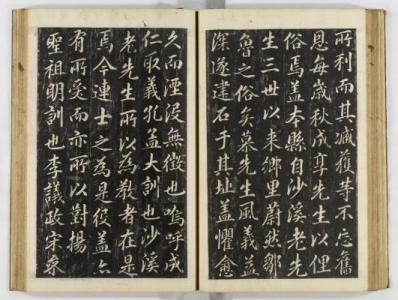 所利而其臧獲等不忘舊
恩每歲秋成享先生以俚
俗焉盖本縣自沙溪老先
生三世以来鄉里蔚然鄒
魯之俗矣慕先生風義益
深遂建石于其址盖懼愈
久而湮沒無徵也嗚呼成
仁取義孔孟大訓也沙溪
老先生所以為教者在是
焉今連士之為是役盖亦
有所受而亦所以對揚
聖祖明訓也李議政宋象